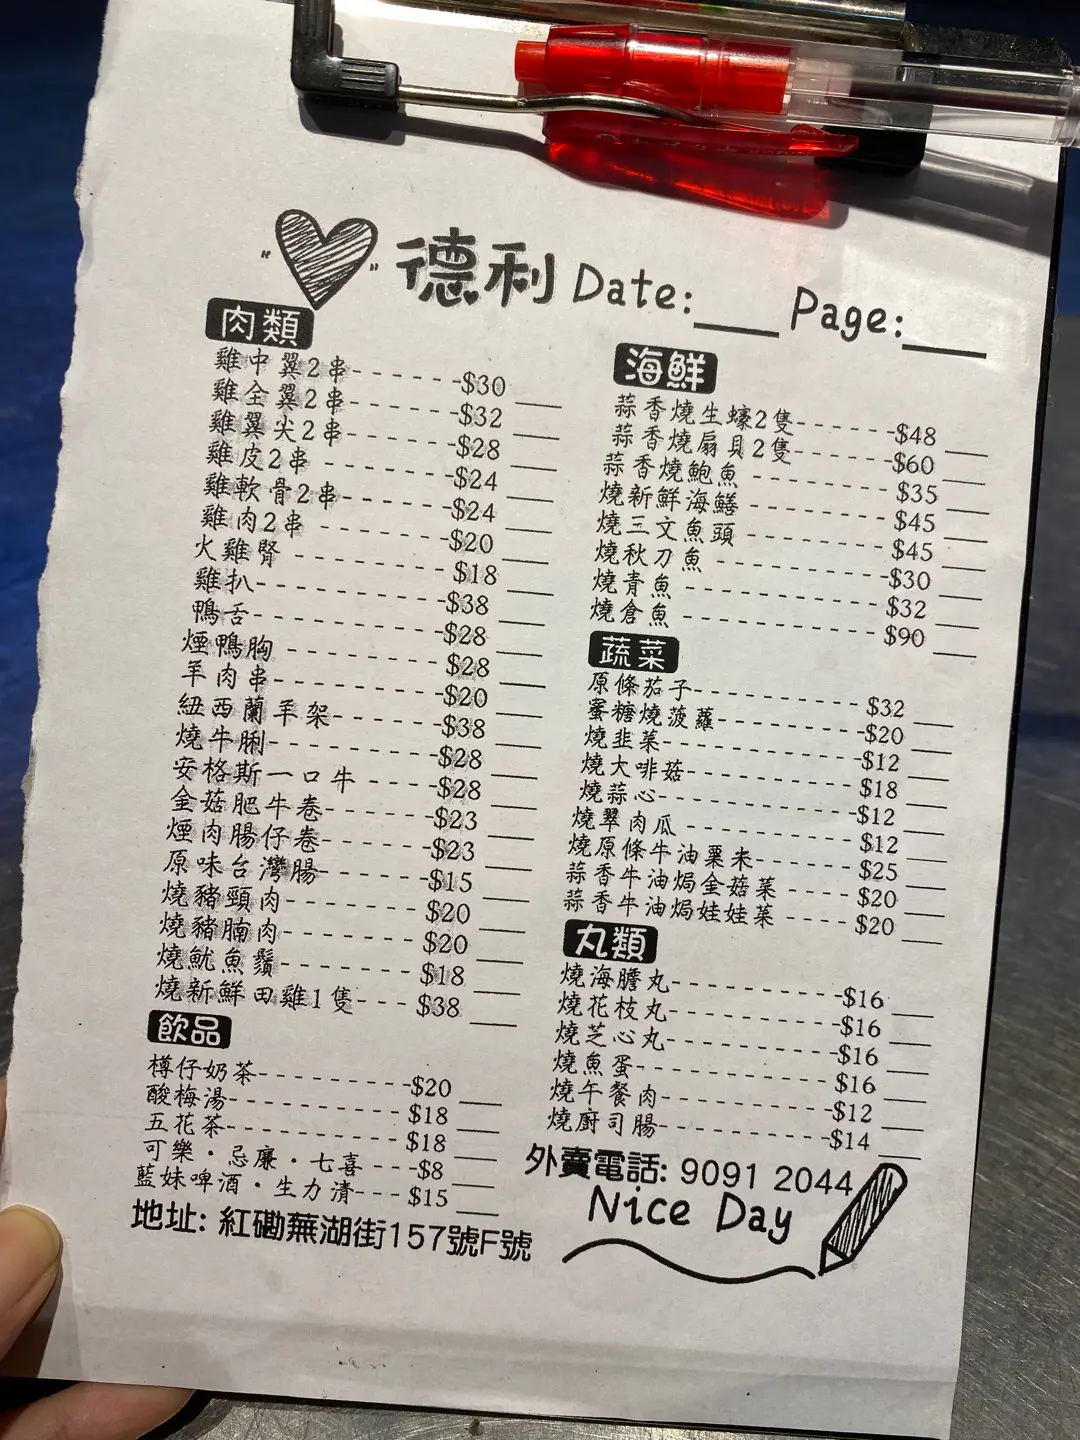 德利 Date:___ Page:___
肉類
雞中翼2串------$30 ___
雞全翼2串------$32 ___
雞翼尖2串------$28 ___
雞皮2串------$24 ___
雞軟骨2串------$24 ___
雞肉2串------$20 ___
火雞腎------$18 ___
雞扒------$38 ___
鴨舌------$28 ___
煙鴨胸------$28 ___
羊肉串------$20 ___
紐西蘭羊架------$38 ___
燒牛脷------$28 ___
安格斯一口牛------$28 ___
金菇肥牛卷------$23 ___
煙肉腸仔卷------$23 ___
原味台灣腸------$15 ___
燒豬頸肉------$20 ___
燒豬腩肉------$20 ___
燒魷魚鬚------$18 ___
燒新鮮田雞1隻---$38 ___
飲品
樽仔奶茶------$20 ___
酸梅湯------$18 ___
五花茶------$18 ___
可樂・忌廉・七喜---$8 ___
藍妹啤酒・生力清---$15 ___
地址: 紅磡蕪湖街157號F號
海鮮
蒜香燒生蠔2隻------$48 ___
蒜香燒扇貝2隻------$60 ___
蒜香燒鮑魚------$35 ___
燒新鮮海鱔------$45 ___
燒三文魚頭------$45 ___
燒秋刀魚------$30 ___
燒青魚------$32 ___
燒倉魚------$90 ___
蔬菜
原條茄子------$32 ___
蜜糖燒菠蘿------$20 ___
燒韭菜------$12 ___
燒大啡菇------$18 ___
燒蒜心------$12 ___
燒翠肉瓜------$12 ___
燒原條牛油粟米------$25 ___
蒜香牛油焗金菇菜----$20 ___
蒜香牛油焗娃娃菜----$20 ___
丸類
燒海膽丸------$16 ___
燒花枝丸------$16 ___
燒芝心丸------$16 ___
燒魚蛋------$16 ___
燒午餐肉------$12 ___
燒廚司腸------$14 ___
外賣電話: 9091 2044
Nice Day